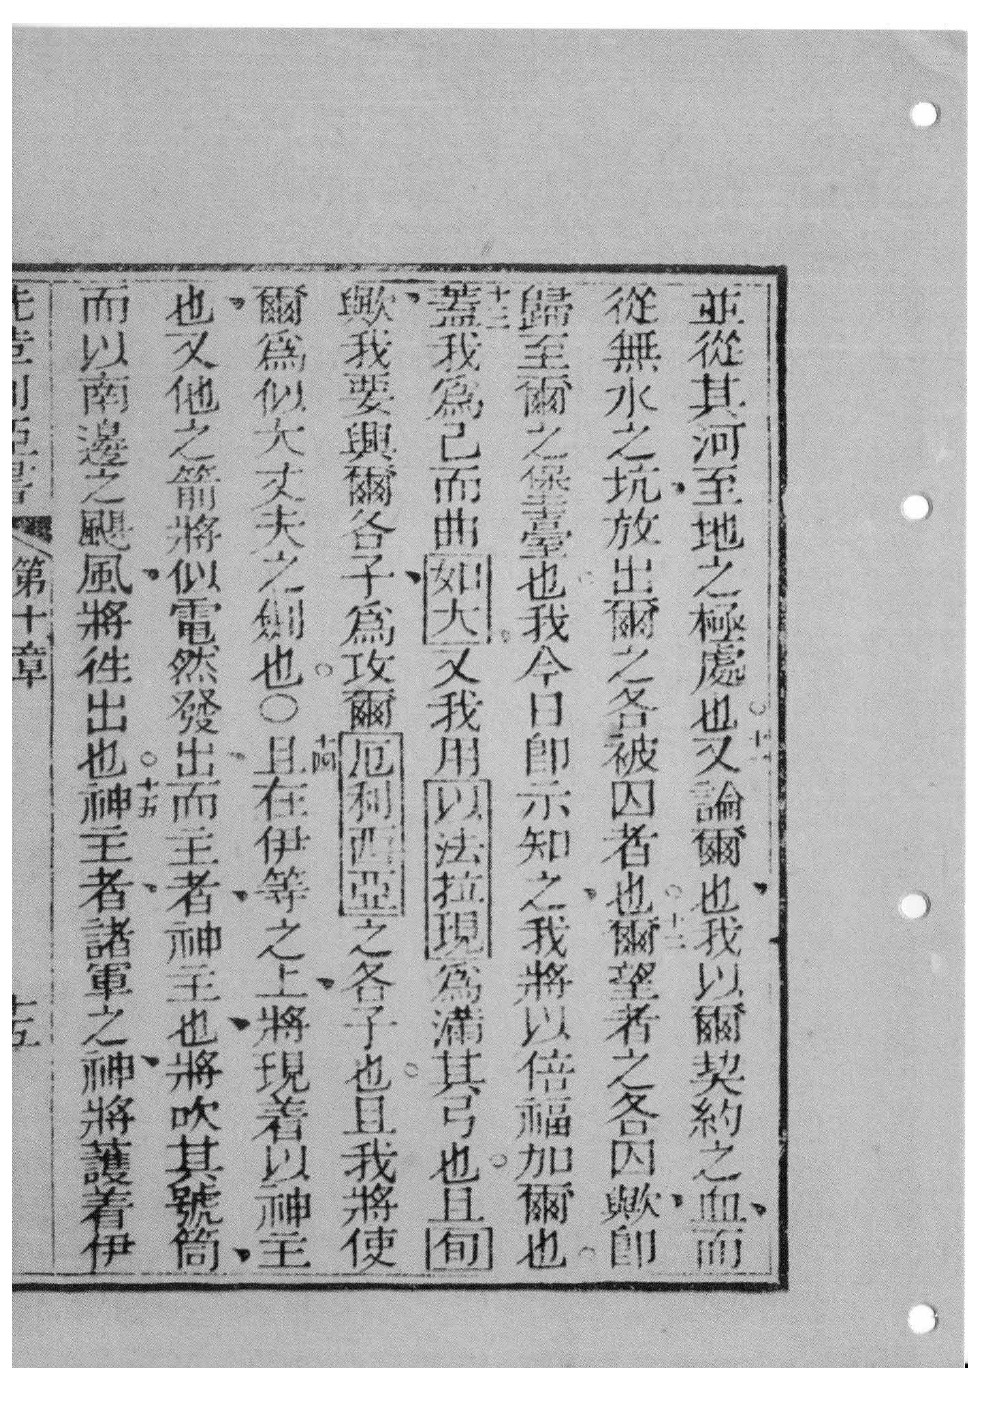 並從其河至地之極處也又十一論爾也我以爾契約之血而
從無水之坑放出爾之各被囚者也爾十二望者之各囚歟卽
歸至爾之堡臺也我今日卽示知之我將以倍福加爾也
蓋十三我爲己而曲如大又我用以法拉現爲滿其弓也且旬
歟我要興爾各子爲攻爾厄利西亞之各子也且我將使
爾爲似大丈夫之劍也〇且十四在伊等之上將現着以神主
也又他之箭將似電然發出而主者神主也將吹其號筒
而以南邊之颶風將徃出也神十五主者諸軍之神將護着伊
第十章